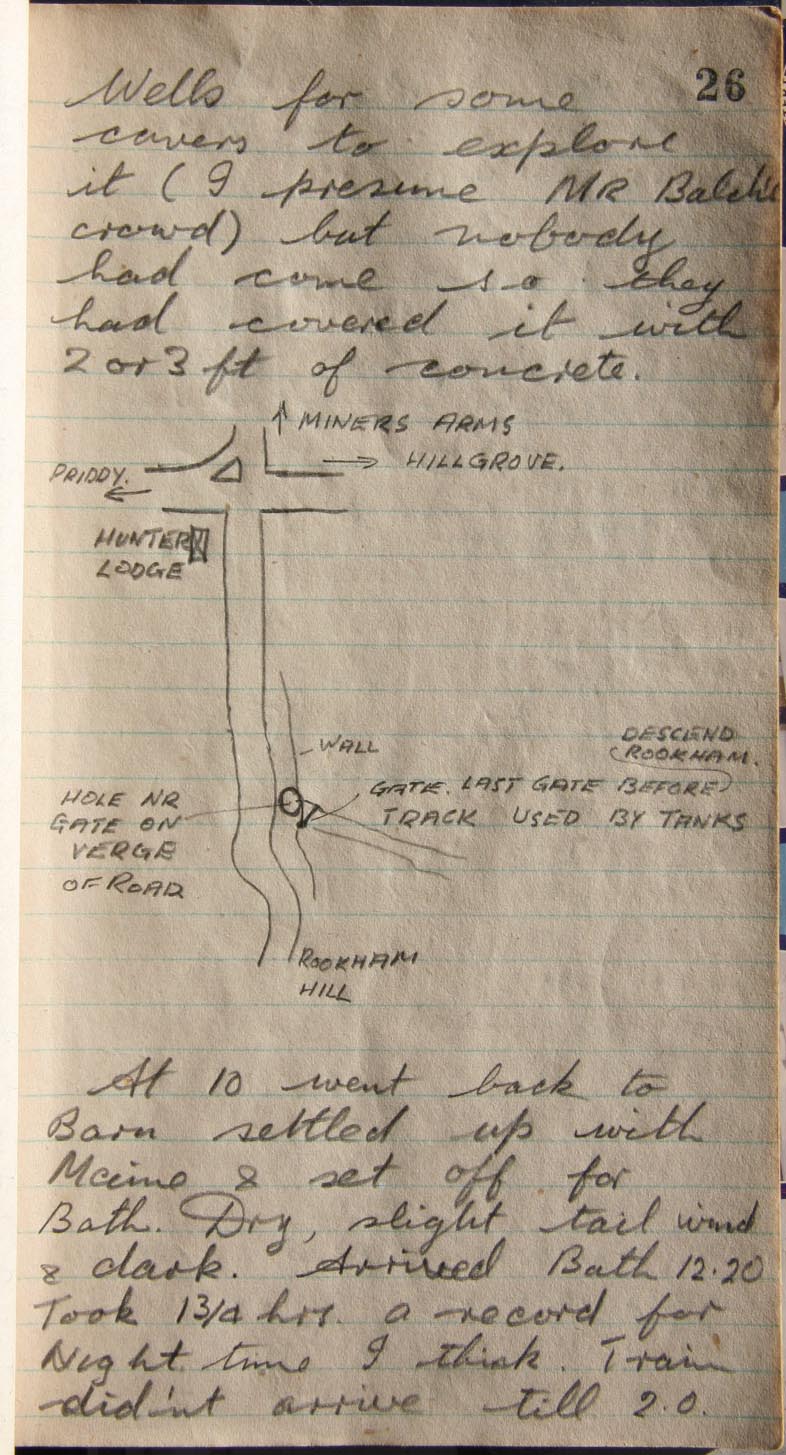 26
Wells for some
cavers to explore
it (I presume MR Balch's
crowd) but nobody
had come so they
had covered it with
2 or 3 ft of concrete.
↑ MINERS ARMS
PRIDDY.
←
→ HILLGROVE.
HUNTER
LODGE
WALL
DESCEND
ROOKHAM.
HOLE NR
GATE ON
VERGE
OF ROAD
GATE. LAST GATE BEFORE
TRACK USED BY TANKS
ROOKHAM
HILL
At 10 went back to
Barn settled up with
Maine & set off for
Bath. Dry, slight tail wind
& dark. Arrived Bath 12.20
Took 1 3/4 hrs. a record for
Night time I think. Train
did'nt arrive till 2.0.